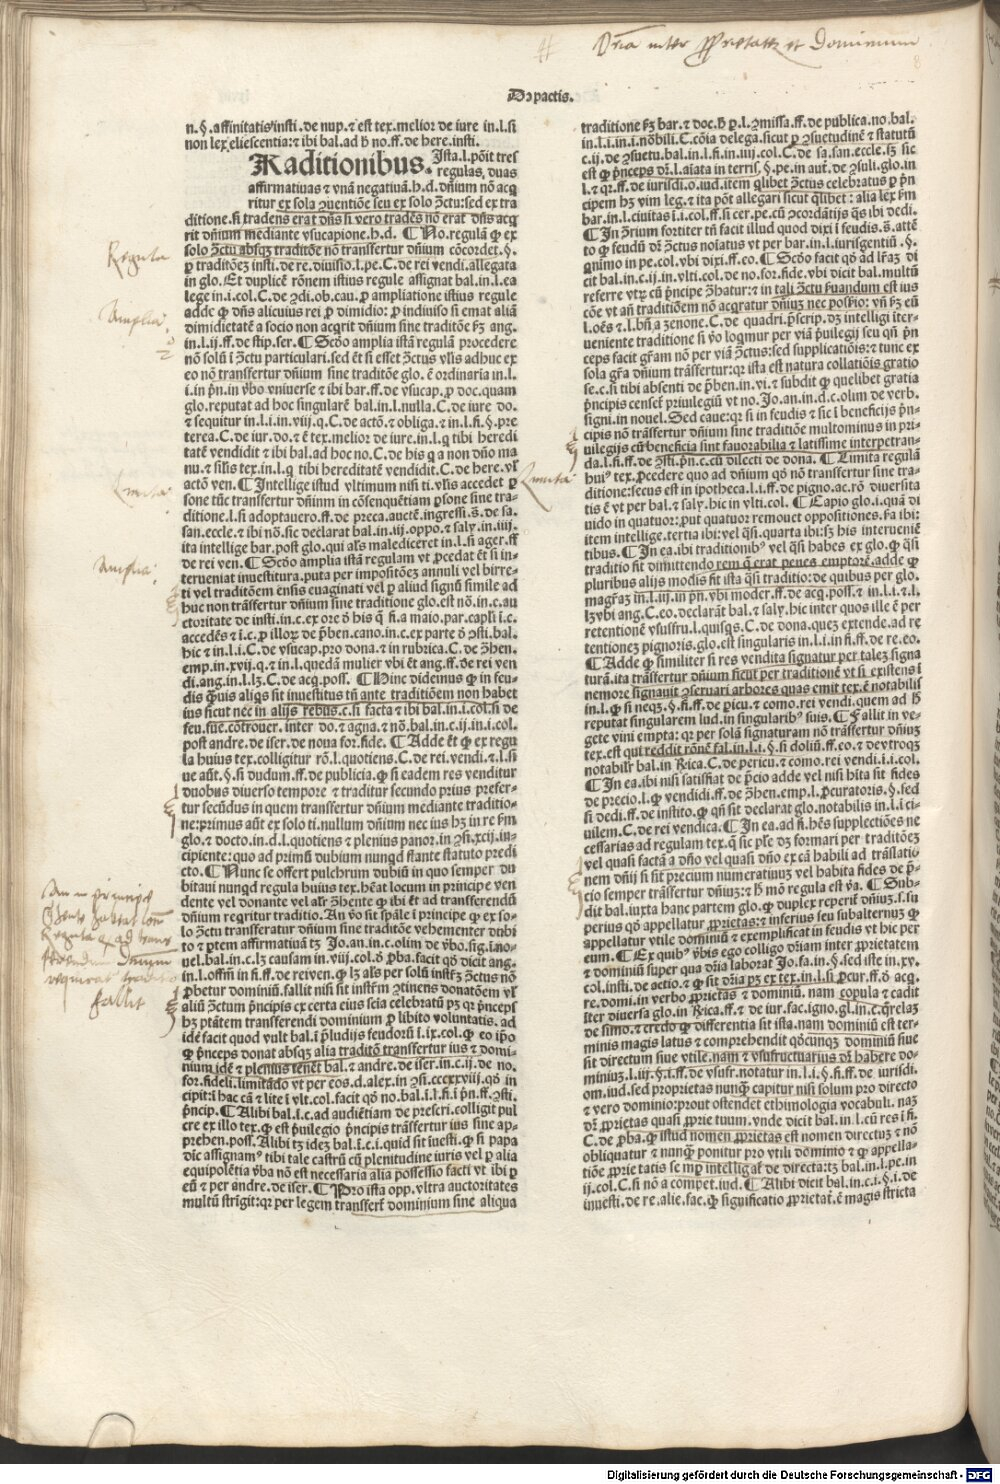 Dr̄ia inter ꝓprietatẽ et Dominium
De pactis.
n.§.affinitatis insti.de nup.⁊ est tex.melior de iure in.l.si
non lex elie scentia:⁊ ibi bal.ad hͦ no.ff.de here.insti.
Traditionibus. Ista.l.pōit tres
regulas, duas
affirmatiuas ⁊ vnā negatiuā.h.d. dn̄ium nō acq
ritur ex sola ꝯuentiōe seu ex solo ꝯctu:sed ex tra
ditione.si tradens erat dn̄s si vero tradēs nō erat dn̄s acq
rit dn̄ium mediante vsucapione.h.d. ¶ No.regulā ꝙ ex
solo ꝯctu absqꝫ traditōe nō transfertur dn̄ium cōcordet.§.
ꝑ traditōeꝫ insti.de re.diuisio.l.pe.C.de rei vendi.allegata
in glo. Et duplicē rōnem istius regule assignat bal.in.l.ea
lege in.i.col.C.de ꝯdi.ob.cau.ꝑ ampliatione istius regule
adde ꝙ dn̄s alicuius rei ꝓ dimidio: ꝓ indiuiso si emat aliā
dimidietatē a socio non acqrit dn̄ium sine traditōe ꝫ ang.
in.l.ij.ff.de stip.ser. ¶ Scdo amplia istā regulā procedere
nō solū ī ꝯctu particulari.sed ēt si esset ꝯctus vlis adhuc ex
eo nō transfertur dn̄ium sine traditōe glo.ē ordinaria in.l.
i.in pn̄.in vbo vniuerse ⁊ ibi bar.ff.de vsucap.ꝓ doc.quam
glo.reputat ad hoc singularē bal.in.l.nulla.C.de iure do.
⁊ sequitur in.l.i.in.vij.q.C.de actō.⁊ obliga.⁊ in.l.fi.§.pre
terea.C.de iur.do.⁊ ē tex.melior de iure.in.l.q tibi heredi
tatē vendidit ⁊ ibi bal.ad hoc no.C.de his q a non dn̄o ma
nu.⁊ silis tex.in.l.q tibi hereditatē vendidit.C.de here.vl
actō ven. ¶ Intellige istud vltimum nisi ti.vlis accedet ꝑ
sone tūc transfertur dn̄inm in cōsenquētiam ꝑsone sine tra-
ditione.l.si adoptauero.ff.de preca.auctē.ingressi.§.de sa.
san.eccle.⁊ ibi nō.sic declarat bal.in.iij.oppo.⁊ saly.in.iiij.
ita intellige bar.post glo.qui als malediceret in.l.si ager.ff
de rei ven. ¶ Scdo amplia istā regulam vt ꝓcedat ēt si in-
terueniat inuestitura.puta per impositōeꝫ annuli vel birre-
ti vel traditōem ensis euaginati vel ꝑ aliud signū simile ad
huc non trāsfertur dn̄ium sine traditione glo.est nō.in.c.au
ctoritate de insti.in.c.ex ore ō his q̄ fi.a maio.par.capli i.c.
accedēs ⁊ i.c.ꝑ illoꝝ de pben.cano.in.c.ex parte ō ꝯsti.bal.
hic ⁊ in.l.i.C.de vsucap.pro dona.⁊ in rubrica.C.de ꝯhen.
emp.in.xvij.q.⁊ in.l.quedā mulier vbi ēt ang.ff.de rei ven
di.ang.in.l.lꝫ.C.de acq.poss. ¶ Hinc dideimus ꝙ in feu-
dis qͣuis aliqs sit inuestitus tn̄ ante traditiōem non habet
ius sicut nec in alijs rebus.c.si facta ⁊ ibi bal.in.i.col.si de
feu.fue.cōtrouer.inter do.⁊ agna.⁊ nō.bal.in.c.ij.in.i.col.
post andre.de iser.de noua for.fide. ¶ Adde ēt ꝙ ex regu
la huius tex.colligitur rō.l.quotiens.C.de rei.vendi.⁊ l.si
ue aūt.§.si dudum.ff.de publicia.ꝙ si eadem res venditur
duobus diuerso tempore ⁊ traditur secundo prius prefer-
tur secūdus in quem transfertur dn̄ium mediante traditio-
ne:primus aūt ex solo ti.nullum dn̄ium nec ius hꝫ in re ꝫm
glo.⁊ docto.in.d.l.quotiens ⁊ plenius panor.in ꝯsi.xcij.in-
cipiente:quo ad primū dubium nunqd stante statuto predi
cto. ¶ Nunc se offert pulchrum dubiū in quo semper du
bitaui nunqd regula huius tex.hēat locum in principe ven
dente vel donante vel alr ꝯhente ꝙ ibi ēt ad transferendū
dn̄ium regritur traditio. An vō sit spāle ī principe ꝙ ex so-
lo ꝯctu transferatur dn̄ium sine traditōe vehementer dubi
to ⁊ ꝑtem affirmatiuā tꝫ Jo.an.in.c.olim de vbo.sig.i.no-
uel.bal.in.c.lꝫ causam in.viij.col.ō pba.facit qō dicit ang.
in.l.offm̄ in fi.ff.de rei ven.ꝙ lꝫ als per solū instꝝ ꝯctus nō
ꝓbetur dominiū.fallit nisi sit instēm ꝯtinens donatōem vl
aliū ꝯctum pn̄cipis ex certa eius scīa celebratū pꝫ qr pn̄ceps
hꝫ ptātem transferendi dominium ꝓ libito voluntatis. ad
idē facit quod vult bal.ī pludijs feudorū i.ix.col.ꝙ eo ipo
ꝙ pn̄ceps donat absqꝫ alia traditō transfertur ius ⁊ domi-
nium idē ⁊ plenius tenet bal.⁊ andre.de iser.in.c.ij.de no.
for.fideli.limitādo vt per eos.d.alex.in ꝯsi.ccccxxviij.qō in
cipit:ī hac cā ⁊ lite i vlt.col.facit qō no.bal.i.l.fi.ī pn̄.ff.ꝯsti.
pn̄cip. ¶ Alibi bal.i.c.ad audiētiam de prescri.colligit pul
cre ex illo tex.ꝙ est puilegio pn̄cipis trāsfertur ius sine ap-
prehen.poss. Alibi tꝫ ideꝫ bal.i.c.i.quid sit īuesti.ꝙ si papa
dic assignamˢ tibi tale castrū cū plenitudine iuris vel ꝑ alia
equipolētia vba nō est necessaria alia possessio facti vt ibi ꝑ
eū ⁊ per andre.de iser. ¶ Pro ista opp.vltra auctoritates
multū strigit:qr per legem transfert dominium sine aliqua
traditione ꝫ bar.⁊ doc.hͦ ꝑ.l.ꝯmissa.ff.de publica.no.bal.
in.l.i.in.i.nōbili.C.cōia delega.sicut ꝑ ꝯsuetudinē ⁊ statutū
c.ij.de ꝯsuetu.bal.in.l.fi.in.iiij.col.C.de sa.san.eccle.ꝫ sic
est ꝙ pn̄ceps dr̄.l.aīata in terris,§.pe.in aut.de ꝯsuli.glo.in
l.⁊ qr.ff.de iurisdi.o.iud.item qlibet ꝯctus celebratus ꝑ pn̄
cipem hꝫ vim leg.⁊ ita pōt allegari sicut qlibet: alia lex ꝫm
bar.in.l.ciuitas ī.i.col.ff.si cer.pe.cū ꝯcordātijs qs ibi dedi.
¶ In ꝯrium fortiter tn̄ facit illud quod dixi ī feudis.§.attē
to ꝙ feudū dr̄ ꝯctus noīatus vt per bar.in.l.iurisgentiū.§.
qnimo in pe.col.vbi dixi.ff.eo. ¶ Scdo facit qō ad lr̄aꝫ di
cit bal.in.c.ij.in.vlti.col.de no.for.fide.vbi dicit bal.multū
referre vtꝝ cū pn̄cipe ꝯhatur:⁊ in tali ꝯctu ꝑandum est ius
cōe vt an̄ traditiōem nō acqratur dn̄iuꝫ nec possio: vn̄ ꝫ cū
l.oēs ⁊.l.bn̄.a zenone.C.de quadri.pscrip.dꝫ intelligi iter-
ueniente traditione si vo loqmur per viā puilegij seu qn̄ pn̄
ceps facit grām nō per viā ꝯctus:sed supplicatiōis:⁊ tunc ex
sola grā dn̄ium trāsfertur:qr ista est natura collatiōis gratio
se.c.si tibi absenti de pben.in.vi.⁊ subdit ꝙ quelibet gratia
pn̄cipis censetꝰ priuilegiū vt no.Jo.an.in.d.c.olim de verb.
signi.in nouel. Sed caue:qr si in feudis ⁊ sic ī beneficijs pn̄-
cipis nō trāsfertur dn̄ium sine traditiōe multominus in pri-
uilegijs cū beneficia sint fauorabilia ⁊ latissime interpetran-
da.l.fi.ff.de ꝯsti.pn̄.c.cū dilecti de dona. ¶ Limita regulā
huiˢ tex.ꝓcedere quo ad dn̄ium qō nō transfertur sine tra-
ditione:secus est in ipotheca.l.i.ff.de pigno.ac.rō diuersita
tis ē vt per bal.⁊ saly.hic in vlti col. ¶ Capio glo.i.quā di
uido in quatuor:put quatuor remouet oppositiones.sa ibi:
item intellige.tertia ibi:vel qsi.quarta ibi:ꝫ his interueniē
tibus. ¶ In ea.ibi traditionibˢ vel qsi habes ex glo.ꝙ qsi
traditio fit dimittendo rem q̄ erat penes emptorē.adde ꝙ
pluribus alijs modis fit ista qsi traditio:de quibus per glo.
magraꝫ in.l.iij.in pn̄.vbi moder.ff.de acq.poss.⁊ in.l.i.⁊.l.
lꝫ vbi ang.C.eo.declarāt bal.⁊ saly.hic inter quos ille ē per
retentionē vsusfru.l.quisqs.C.de dona.queꝫ extende.ad re
tentioneꝫ pignoris.glo.est singularis in.l.i.in fi.ff.de re.eo.
¶ Adde ꝙ similiter si res vendita signatur per taleꝫ signa
turā.ita trāsfertur dn̄ium sicut per traditionē vt si existens ī
nemore signauit ꝯseruari arbores quas emit tex.ē notabilis
in.l.ꝙ si neqꝫ.§.fi.ff.de ꝑicu.⁊ como.rei vendi.quem ad hͦ
reputat singularem lud.in singularibˢ suis. ¶ Fallit in ve-
gete vini empta: qr per solā signaturam nō trāsfertur dn̄iuꝫ
tex.est qui reddit rōnē fal.in.l.i.§.si doliū.ff.eo.⁊ de vtroqꝫ
notabilr bal.in Rica.C.de pericu.⁊ como.rei vendi.i.i.col.
¶ In ea.ibi nisi satisfiat de pcio adde vel nisi hita sit fides
de precio.l.ꝙ vendidi.ff.de ꝯhen.emp.l.pcuratoris.§.sed
si dedi.ff.de instito.ꝙ qn̄ sit declarat glo.notabilis in.l.i.ci-
uilem.C.de rei vendica. ¶ In ea.ad fi.hēs supplectiōes ne
cessarias ad regulam tex.q̄ sic ple dꝫ formari per traditōeꝫ
vel quasi factā a dn̄o vel quasi dn̄o ex cā habili ad trāslatio
nem dn̄ij si sit precium numeratinuꝫ vel habita fides de p̄-
cio semper trāsfertur dn̄iuꝫ:⁊ hͦ mō regula est va. ¶ Sub-
dit bal.iuxta hanc partem glo.ꝙ duplex reperit dn̄iuꝫ.s.su
perius qō appellatur ꝓprietas:⁊ inferius seu subalternuꝫ ꝙ
appellatur vtile dominiū ⁊ exemplificat in feudis vt hic per
eum. ¶ Ex quibˢ vbis ego colligo dr̄iam inter ꝓprietatem
⁊ dominiū super qua dr̄ia laborat Jo.fa.in.§.sed iste in.xv.
col.insti.de actio.⁊ ꝙ sit dr̄ia pꝫ ex tex.in.l.si pcur.ff.ō acq.
re.domi.in verbo ꝓprietas ⁊ dominiū. nam copula ⁊ cadit
īter diuersa glo.in Rica.ff.⁊ de iur.fac.igno.gl.in.c.qrelaꝫ
de simo.⁊ credo ꝙ differentia sit ista.nam dominiū est ter-
minis magis latus ⁊ comprehendit qōcunqꝫ dominiū siue
sit directum siue vtile.nam ⁊ vsufructuarius dr̄ habere do-
miniuꝫ.l.iij.§.i.ff.de vsufr.notatur in.l.i.§.fi.ff.de iurisdi.
om.iud.sed proprietas nunqͣ capitur nisi solum pro directo
⁊ vero dominio:prout ostendet ethimologia vocabuli. naꝫ
dr̄ ꝓprietas quasi ꝓprie tuum.vnde dicit bal.in.l.cū res i fi.
C.de pba.ꝙ istud nomen ꝓprietas est nomen directuꝫ ⁊ nō
obliquatur ⁊ nunqͣ ponitur pro vtili dominio ⁊ ꝙ appella-
tiōe ꝓprie tatis se mꝑ intelligat de directa:tꝫ bal.in.l.pe.in
ij.col.C.si nō a compet.iud. ¶ Alibi dicit bal.in.c.i.§.i.de
inuesti.de re.alie.fac.ꝙ significatio ꝓprietat.ē magis stricta
Regula
Amplia
2
Limita
Amplia
Limita
An in principe
Regula
fallit
Digitalisierung gefördert durch die Deutsche Forschungsgemeinschaft - DFG